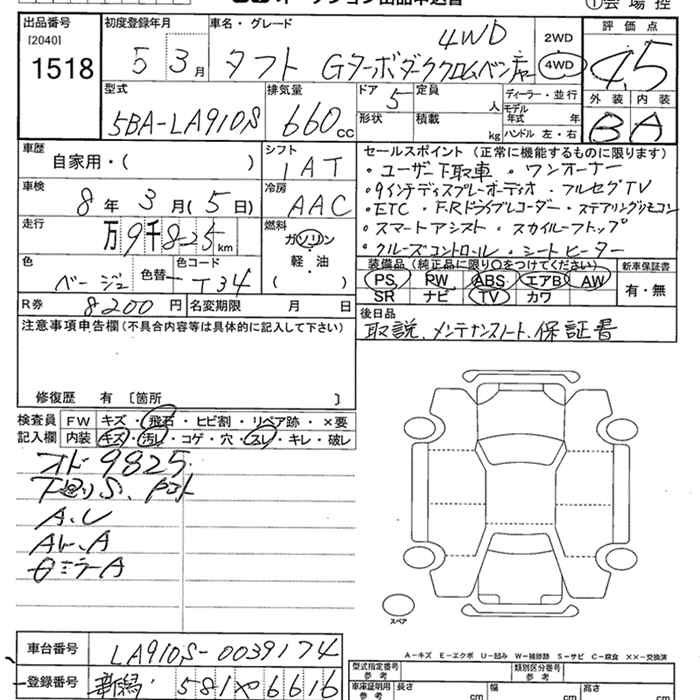 ①会場控
出品番号 初度登録年月 車名・グレード 評価点
[2040] 4WD 2WD
1518 5 3月 タフト Gターボダーククロムベンチャー 4WD 4.5
型式 排気量 ドア 定員 ディーラー・並行 外装 内装
5BA-LA910S 660cc 5 人 モデル年式 年 B A
形状 積載 kg ハンドル 左・右
車歴 シフト セールスポイント(正常に機能するものに限ります)
自家用・( ) IAT ・ユーザー下取車 ・ワンオーナー
車検 冷房 ・9インチディスプレーオーディオ ・フルセグTV
8年 3月(5日) AAC ・ETC ・F.Rドライブレコーダー ・ステアリングリモコン
走行 燃料 ・スマートアシスト ・スカイルーフトップ
万9千825km ガソリン ・クルーズコントロール ・シートヒーター
軽・油 装備品(純正品に限り○をつけてください) 新車保証書
色 色替 色コード ( ) PS PW ABS エアB AW 有・無
ベージュ T34 SR ナビ TV カワ
R券 8200円 名変期限 月 日 後日品
注意事項申告欄(不具合内容等は具体的に記入して下さい) 取説、メンテナンスノート、保証書
修復歴 有 〔箇所 〕
検査員 FW キズ・飛石・ヒビ割・リペア跡・×要
記入欄 内装 キズ・汚レ・コゲ・穴・スレ・キレ・破レ
オド9825
A.U
AトA
スペア
A−キズ E−エクボ U−凹み W−補修跡 S−サビ C−腐食 ××−交換済
車台番号 LA910S-0039174
登録番号 新潟 581 6616
型式指定番号 参考 類別区分番号 参考
車庫証明用 参考 長さ cm 幅 cm 高さ cm